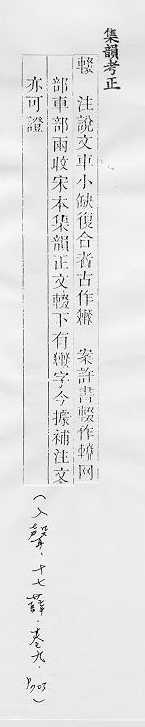 集韻考正
輟 注說文車小缺復合者古作 案許書輟作 网
部車部兩收宋本集韻正文輟下有 字今據補注文
亦可證
(入聲.十七薛.卷九.